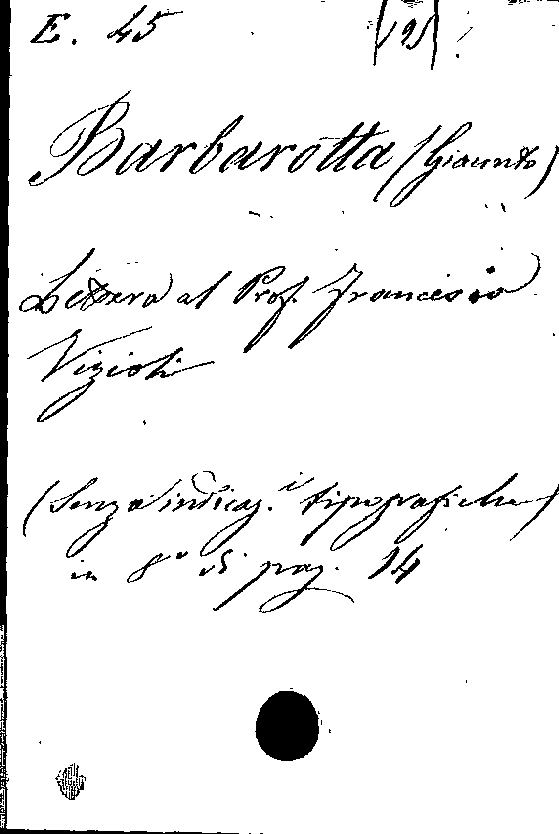 E. 45 (19)
Barbarotta (Giacinto)
Lettera al Prof. Francesco
Vizioli
(Senza indicaz.i tipografiche)
in 8° di pag. 14